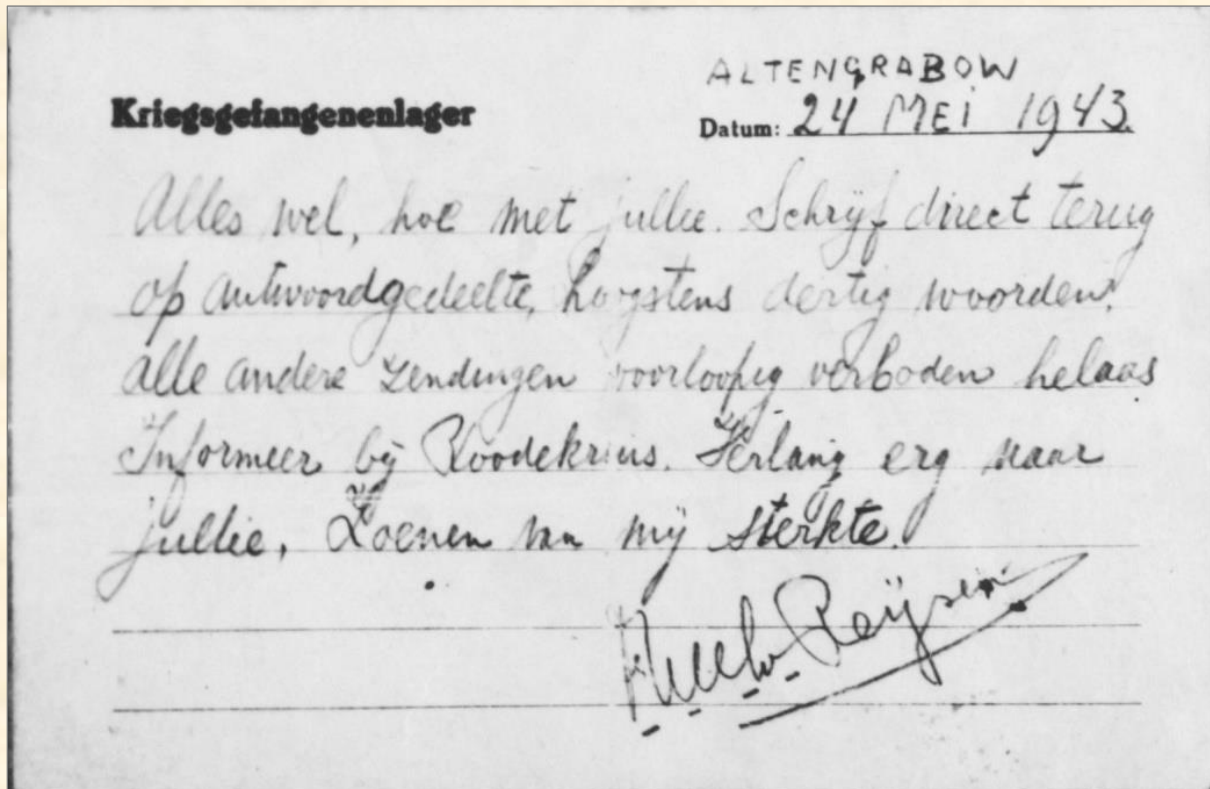 ALTENGRABOW
Kriegsgefangenenlager
Datum: 24 MEI 1943.
Alles wel, hoe met jullie. Schrijf direct terug
op antwoordgedeelte, hoogstens dertig woorden.
alle andere zendingen voorloopig verboden helaas
Informeer bij Roodekruis. Verlang erg naar
jullie, Zoenen van mij sterkte.
Reijsen